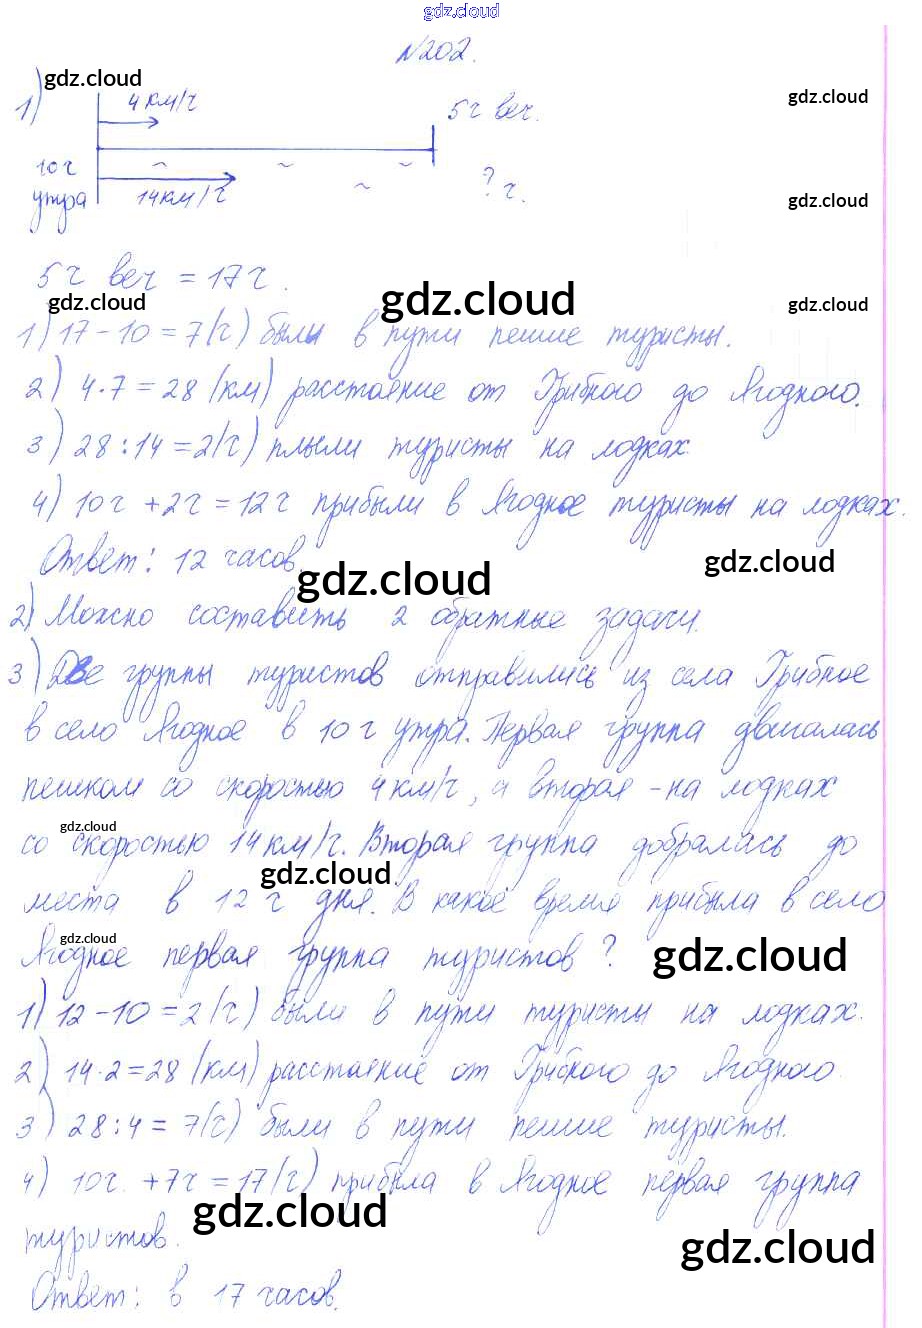 gdz.cloud
№202.
gdz.cloud
1) 4 км/ч 5 ч веч.
gdz.cloud
10 ч
утра 14 км/ч ? ч.
gdz.cloud
5 ч веч = 17 ч.
gdz.cloud gdz.cloud gdz.cloud
1) 17 - 10 = 7 (ч) были в пути пешие туристы.
2) 4 · 7 = 28 (км) расстояние от Грибного до Ягодного.
3) 28 : 14 = 2 (ч) плыли туристы на лодках.
4) 10 ч + 2 ч = 12 ч прибыли в Ягодное туристы на лодках.
Ответ: 12 часов.
gdz.cloud gdz.cloud
2) Можно составить 2 обратные задачи.
3) Две группы туристов отправились из села Грибное
в село Ягодное в 10 ч утра. Первая группа двигалась
пешком со скоростью 4 км/ч, а вторая - на лодках
gdz.cloud
со скоростью 14 км/ч. Вторая группа добралась до
gdz.cloud
места в 12 ч дня. В какое время прибыла в село
gdz.cloud
Ягодное первая группа туристов?
gdz.cloud
1) 12 - 10 = 2 (ч) были в пути туристы на лодках.
2) 14 · 2 = 28 (км) расстояние от Грибного до Ягодного.
3) 28 : 4 = 7 (ч) были в пути пешие туристы.
4) 10 ч. + 7 ч = 17 (ч) прибыла в Ягодное первая группа
gdz.cloud
туристов.
gdz.cloud
Ответ: в 17 часов.